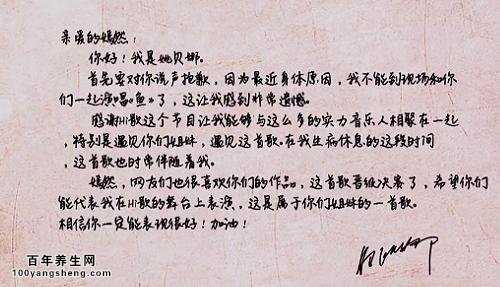 亲爱的嫣然：
你好！我是姚贝娜。
首先要对你说声抱歉，因为最近身体原因，我不能到现场和你
们一起演唱《鱼》了，这让我感到非常遗憾。
感谢Hi歌这个节目让我能够与这么多的实力音乐人相聚在一起
，特别是遇见你们姐妹，遇见这首歌。在我生病休息的这段时间
，这首歌也时常伴随着我。
嫣然，网友们也很喜欢你们的作品，这首歌晋级决赛了，希望你们
能代表我在Hi歌的舞台上表演，这是属于你们姐妹的一首歌。
相信你一定能表现很好！加油！
百年养生网
100yangsheng.com